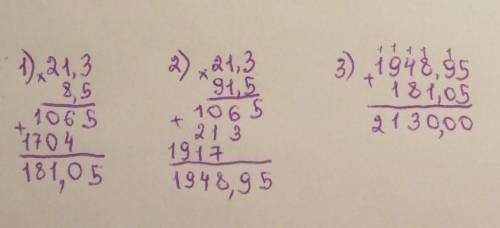 1) × 21,3
8,5
+ 1065
1704
181,05
2) × 21,3
91,5
+ 1065
213
1917
1948,95
3) 1 1 1 1 1
+ 1948,95
181,05
2130,00